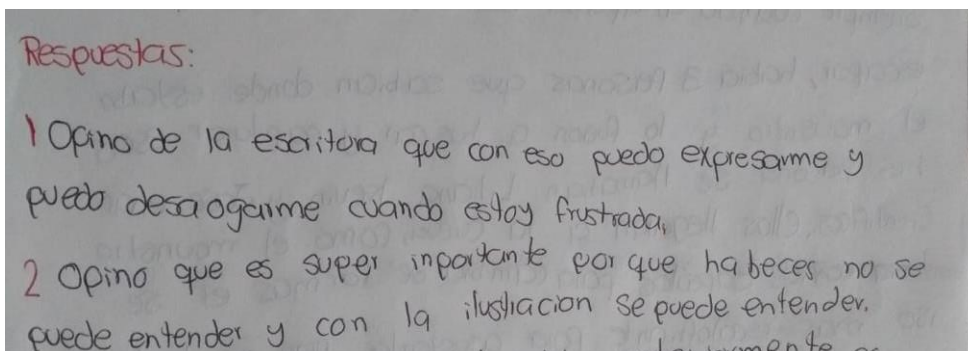 Respuestas:
1 Opino de la escritora que con eso puedo expresarme y
puedo desaogarme cuando estoy frustrada,
2 Opino que es super inportante por que habeces no se
puede entender y con la ilustracion se puede entender.